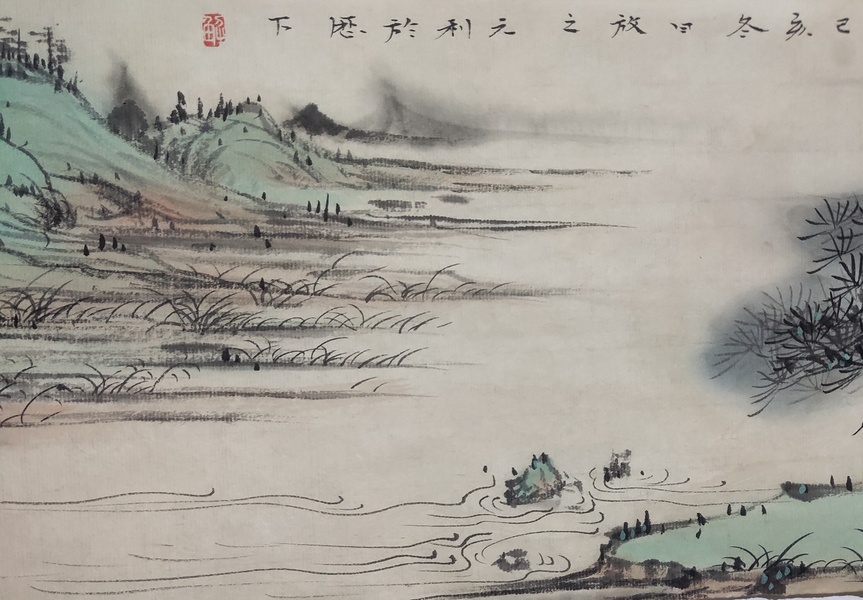 己亥冬日放之元利於歷下